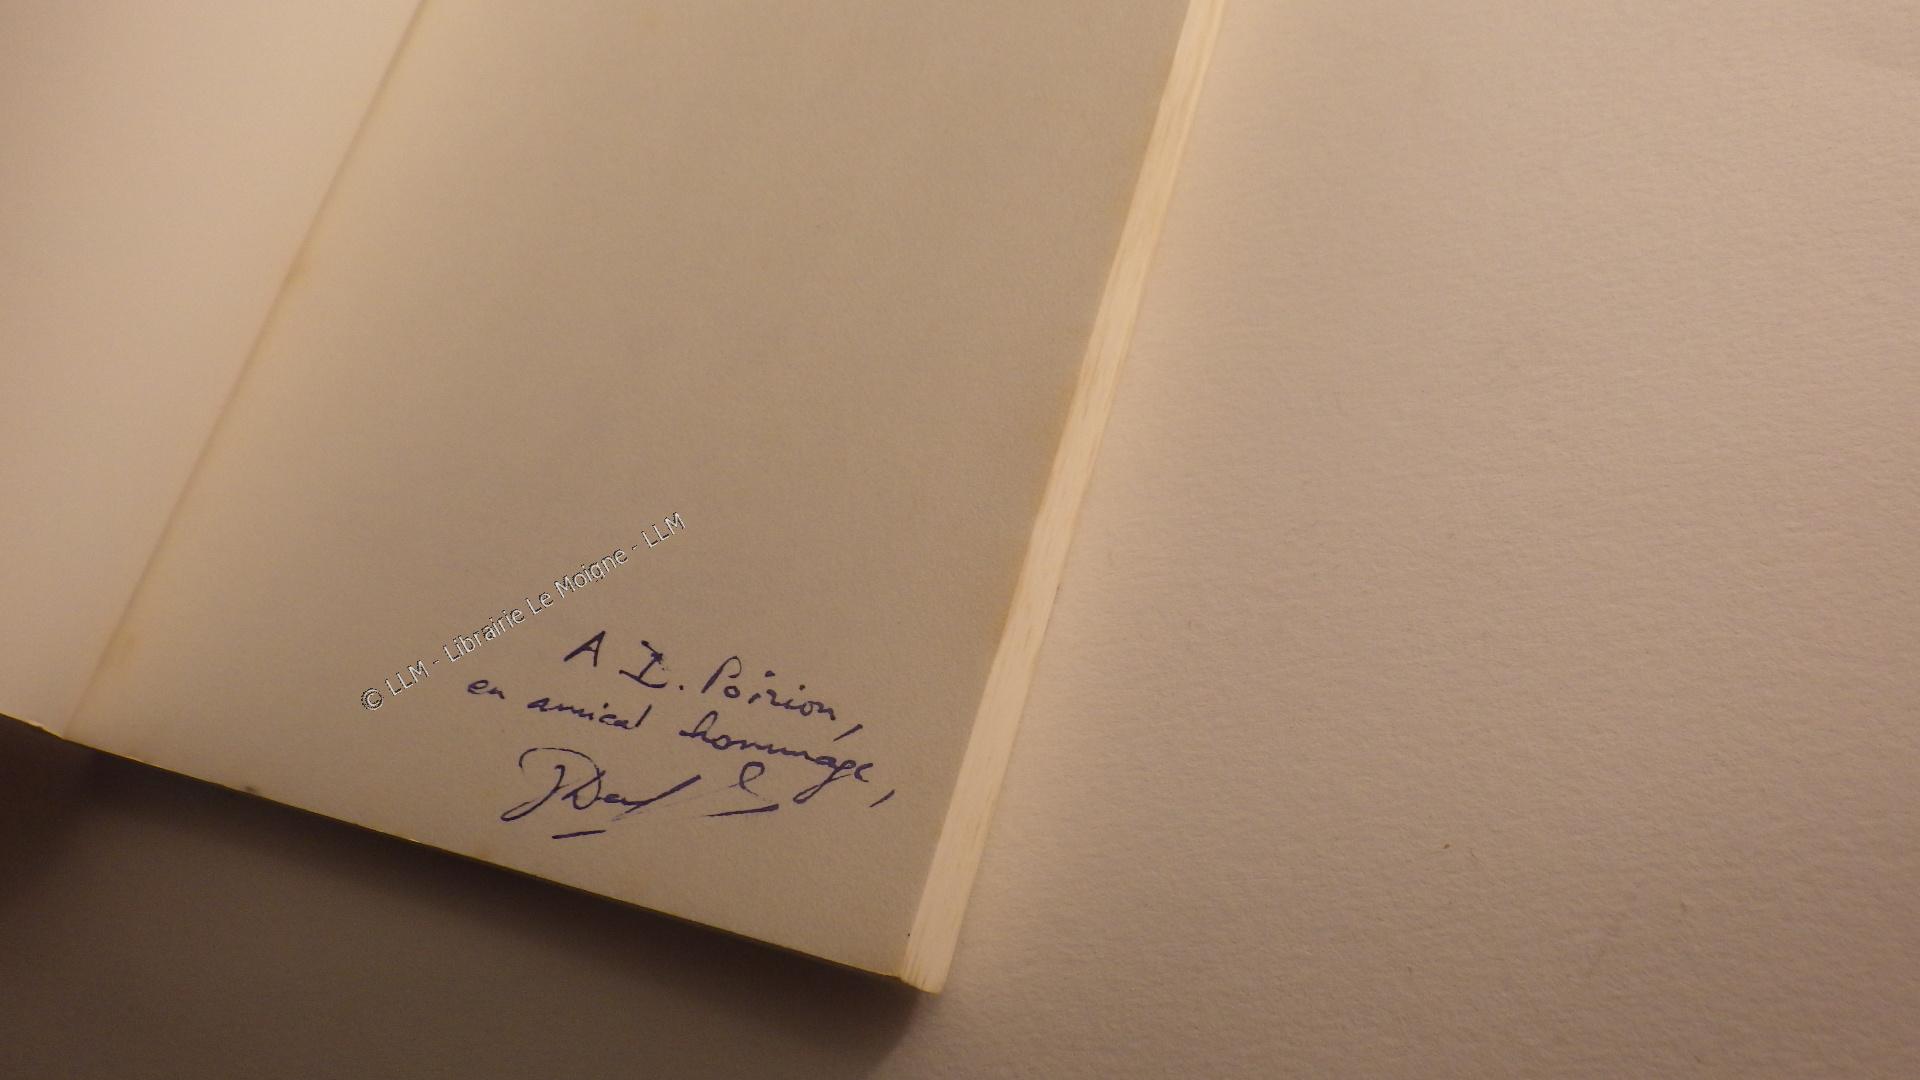 © LLM - Librairie Le Moigne - LLM
A D. Poirion,
en amical hommage,